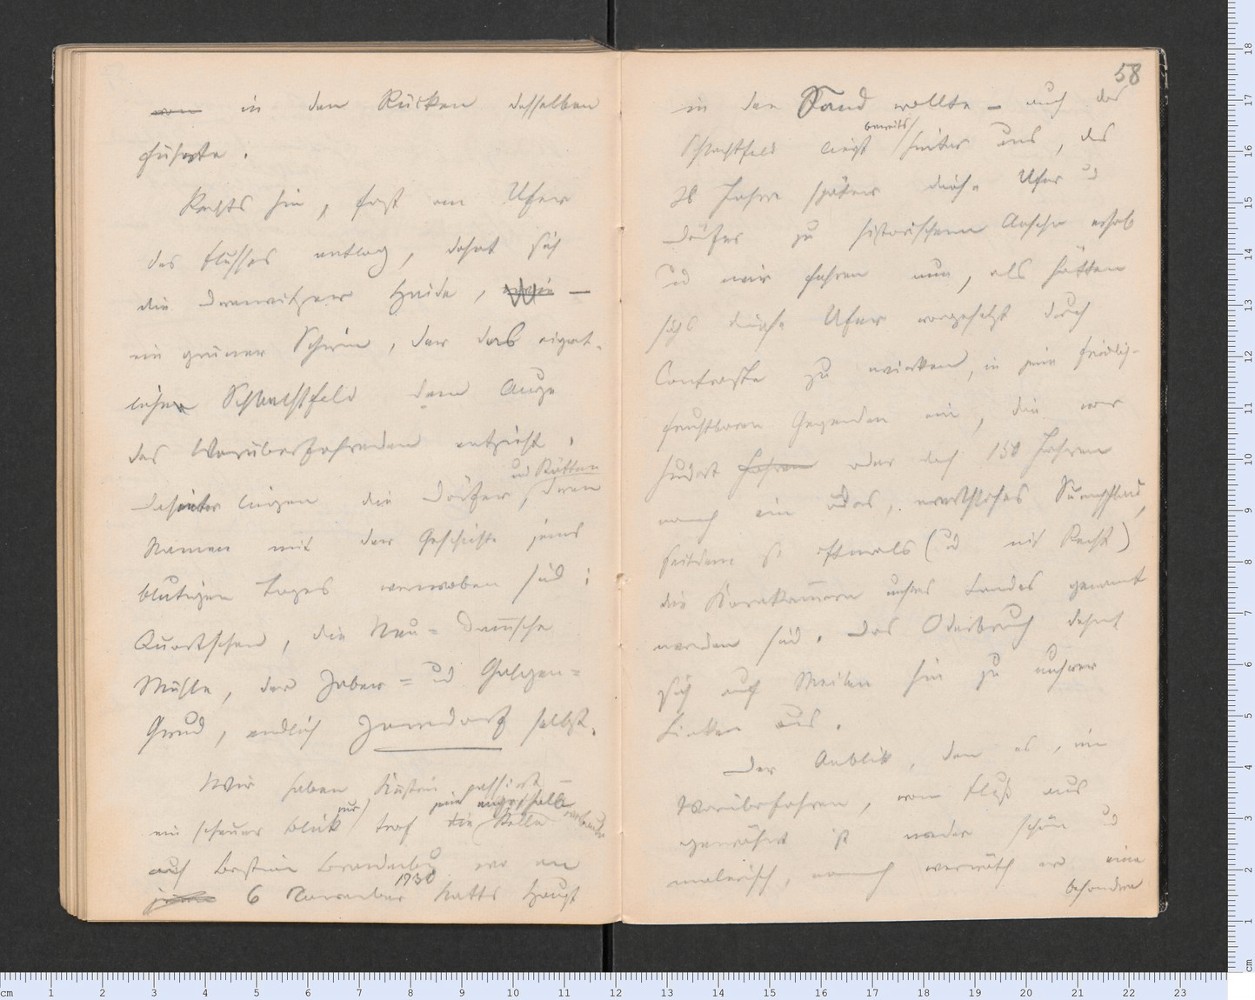 in den Rücken desselben
führte.
Rechts hin, fast am Ufer
des Flusses entlag, dehnt sich
die Drewitzer Haide, —
ein grüner Schirm, der das eigent-
lichen Schlachtfeld dem Auge
des Vorüberfahrenden entzieht.
Dahinter liegen die Dörfer und Stätten, deren
Namen mit der Geschichte jenes
blutigen Tages verwoben sind:
Quartschen, die Neu-Dammsche
Mühle, der Zaber- und Galgen-
Grund, endlich Zorndorf selbst.
Wir haben Küstrin passirt —
ein scheuer Blick nur traf die Stelle
auf Bastion Brandenburg, wo am
6 November 1730 Katts Haupt
58
in den Sand rollte – auch das
Schlachtfeld liegt bereits hinter uns, das
28 Jahre später diese Ufer und
Dörfer zu historischem Ansehn erhob
und wir fahren nun, als hätten
sichs diese Ufer vorgesetzt durch
Contraste zu wirken, in jene friedlich-
fruchtbaren Gegenden ein, die vor
hundert Jahren oder doch 150 Jahren
noch ein ödes, werthloses Sumpfland,
seitdem so oftmals (und mit Recht)
die Kornkammern unsres Landes genannt
worden sind. Das Oderbruch dehnt
sich auf Meilen hin zu unsrer
Linken aus.
Der Anblick, den es, im
Vorüberfahren, vom Fluß aus
gewährt ist weder schön und
malerisch, noch verräth er eine
besondre